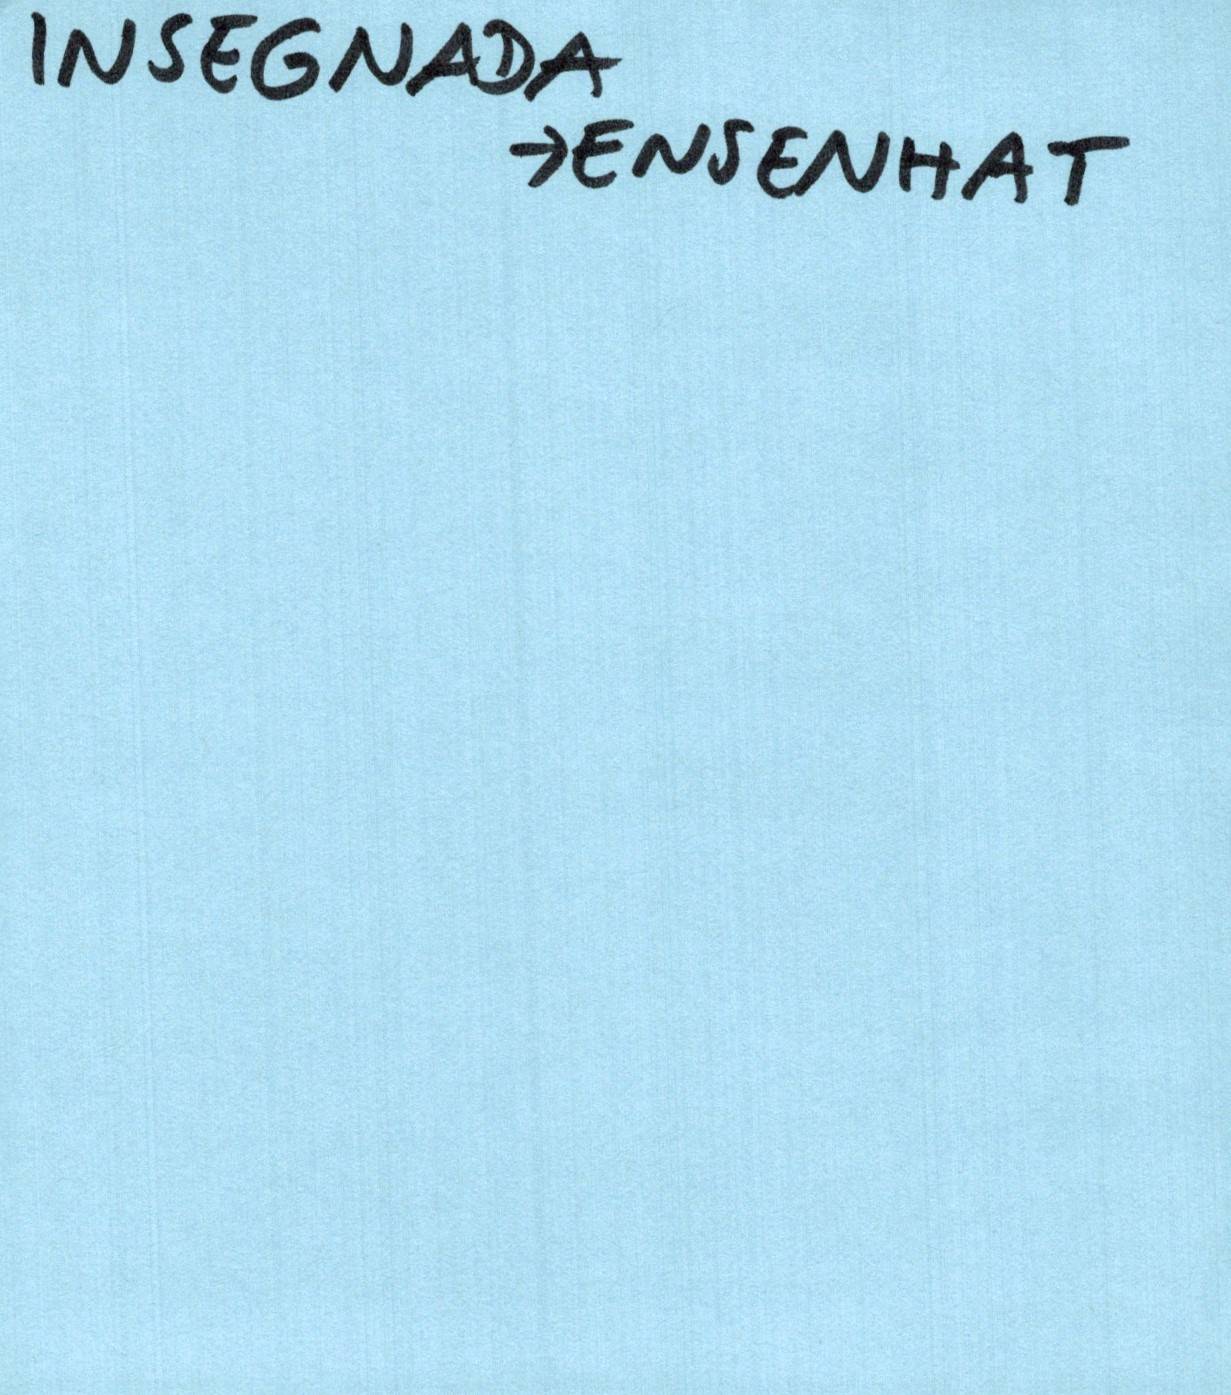 INSEGNADA
→ENSENHAT